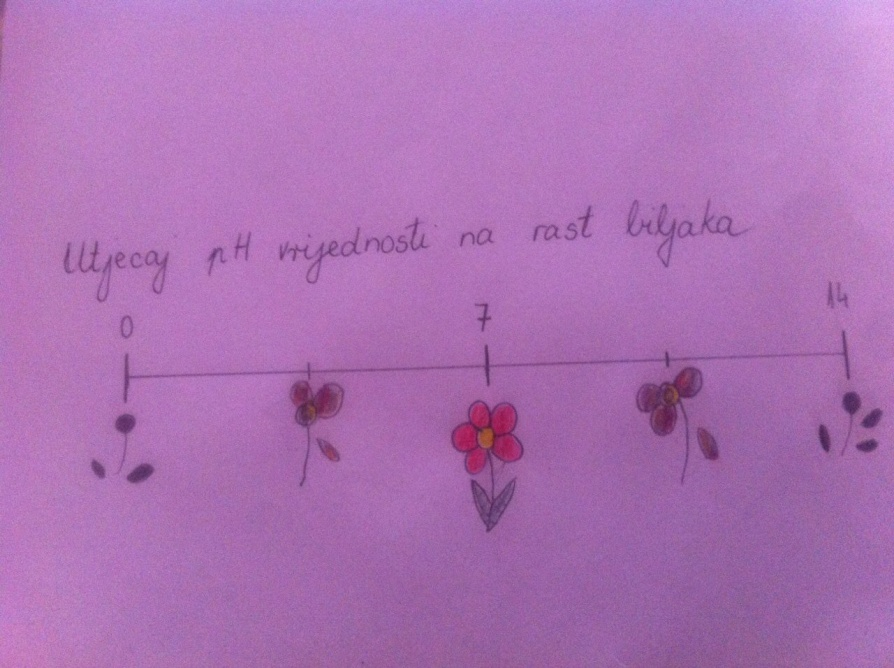 Utjecaj pH vrijednosti na rast biljaka
0 7 14